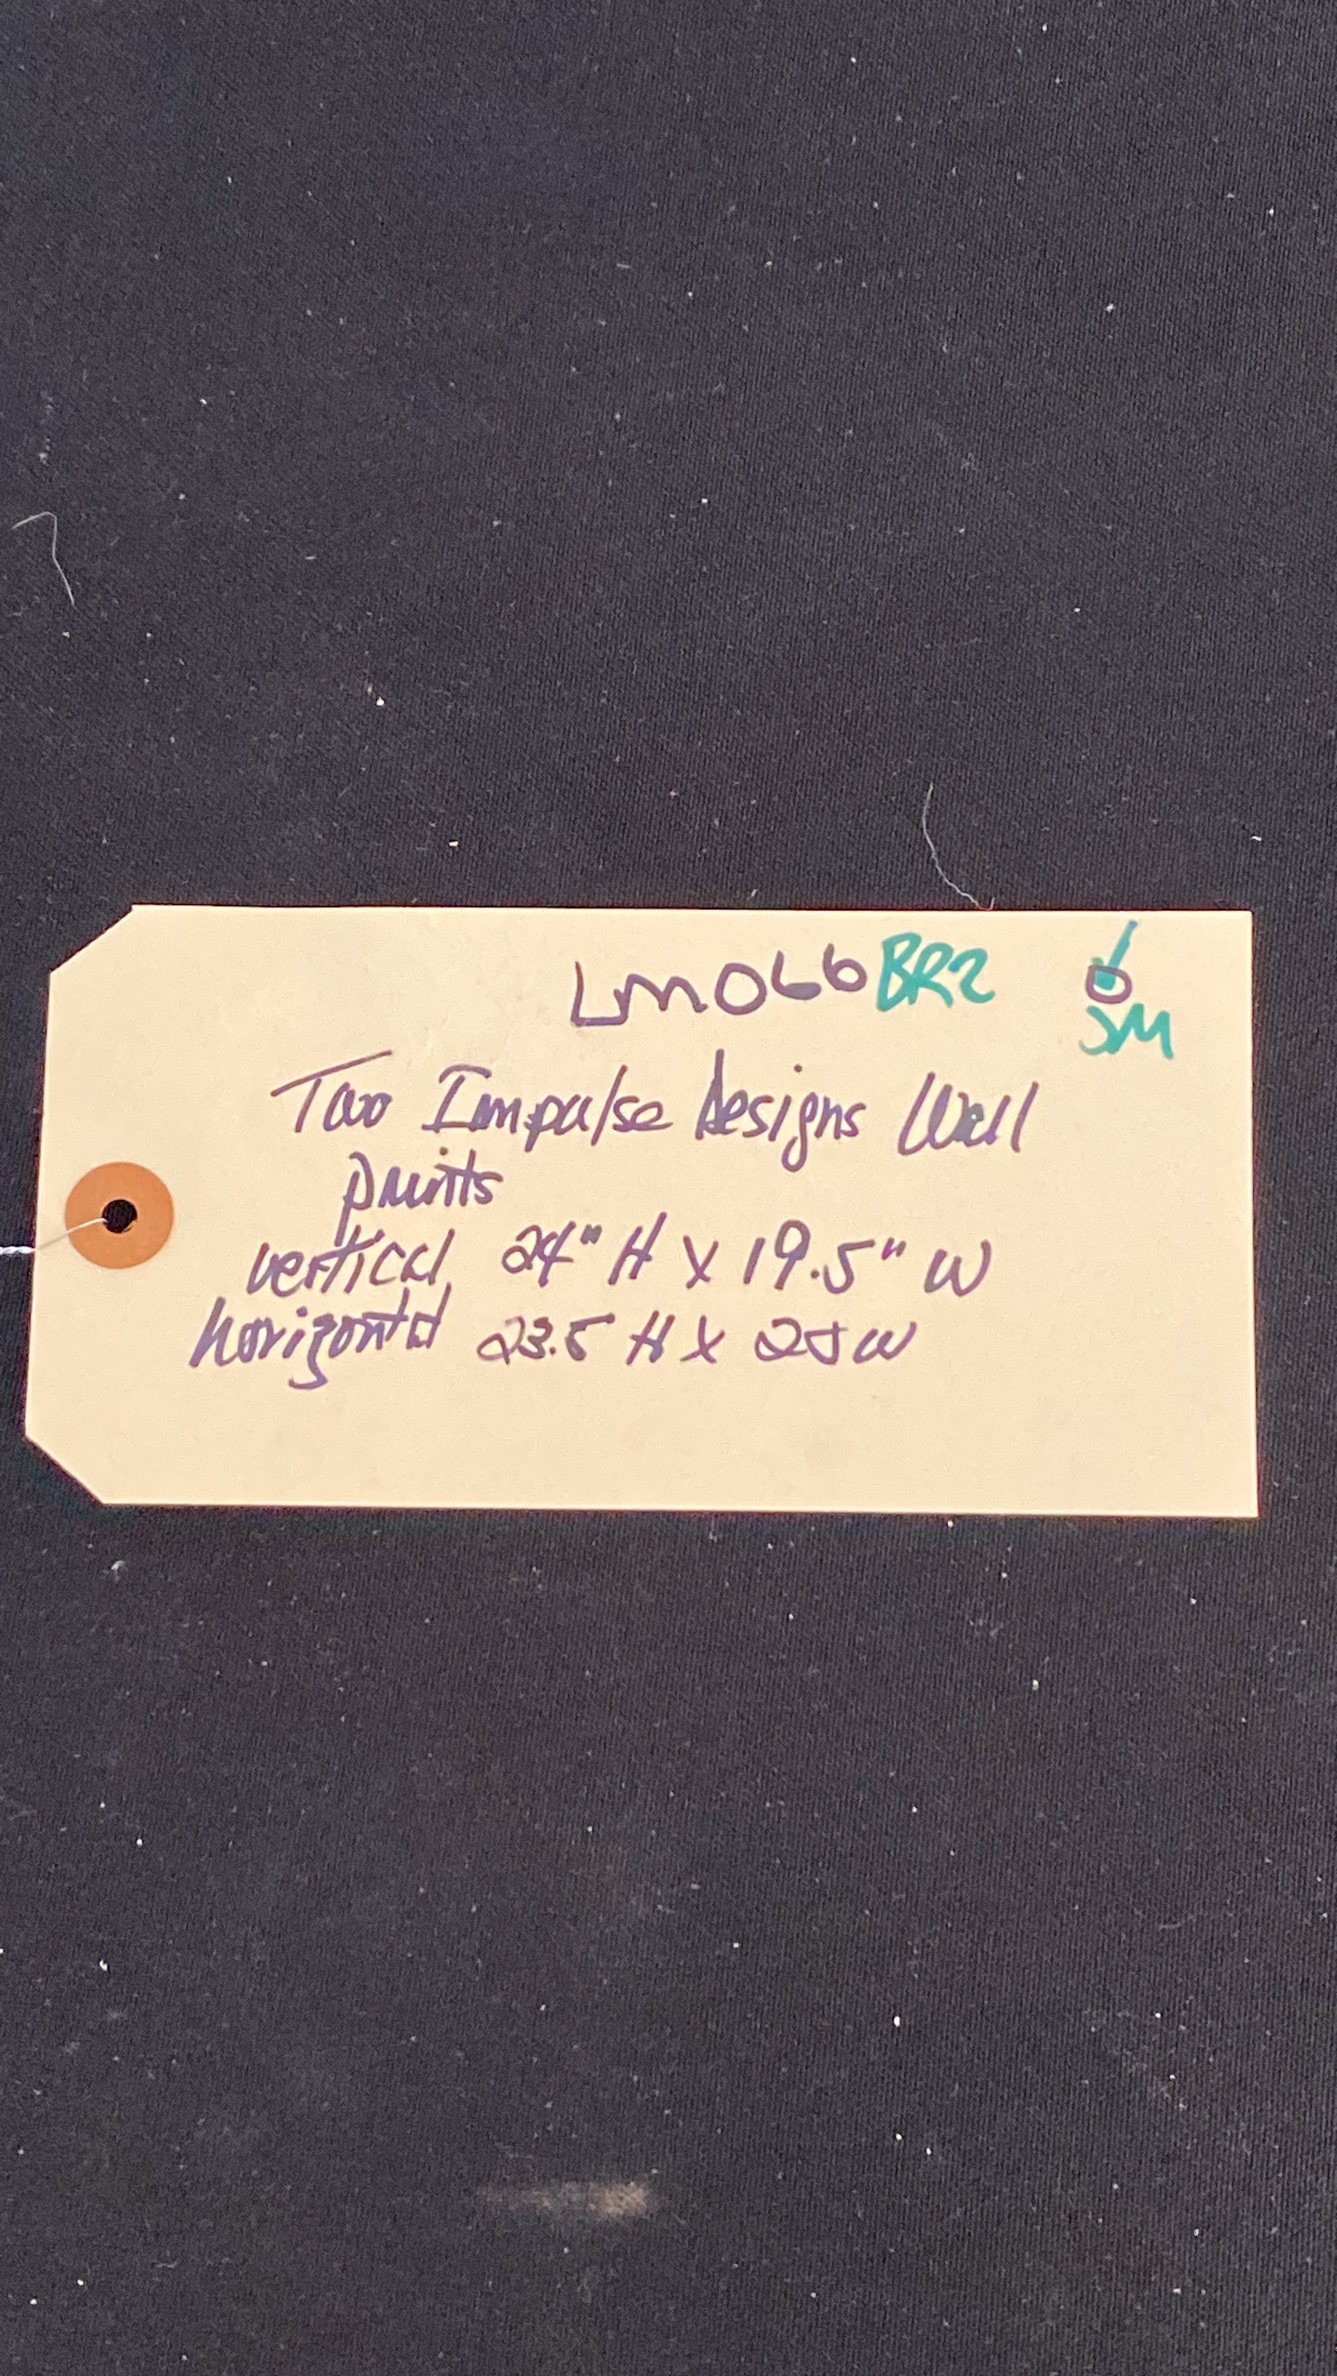 LM066 BR2
SM
Two Impulse Designs Wall
prints
vertical 24" H x 19.5" W
horizontal 23.5 H x 25 W